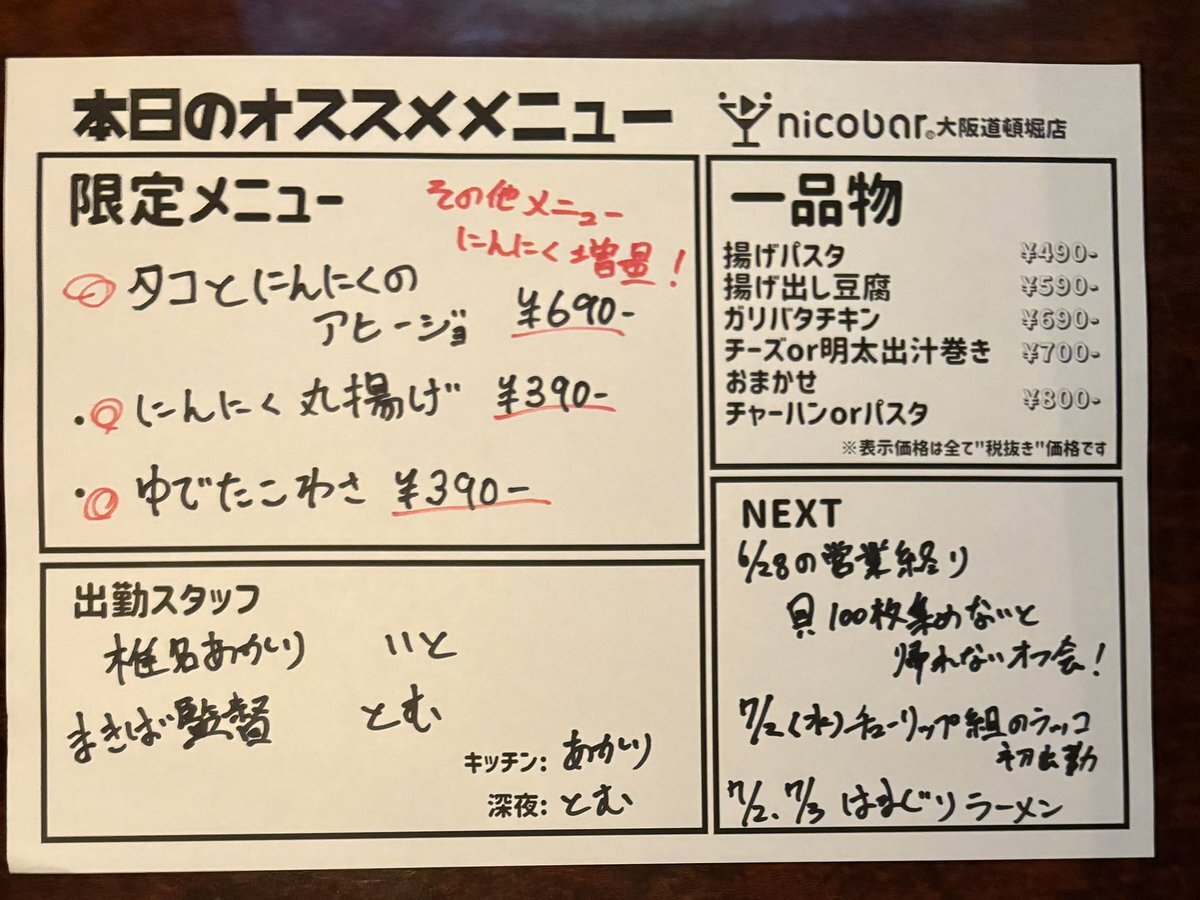 本日のオススメメニュー
nicobar®大阪道頓堀店
限定メニュー
その他メニュー
にんにく増量!
タコとにんにくの
アヒージョ ¥690-
・にんにく丸揚げ ¥390-
・ゆでたこわさ ¥390-
出勤スタッフ
椎名あかり いと
まきば監督 とむ
キッチン: あかり
深夜: とむ
一品物
揚げパスタ ¥490-
揚げ出し豆腐 ¥590-
ガリバタチキン ¥690-
チーズor明太出汁巻き ¥700-
おまかせ
チャーハンorパスタ ¥800-
※表示価格は全て"税抜き"価格です
NEXT
6/28の営業終り
貝100枚集めないと
帰れないオフ会!
7/2(水)チューリップ組のラッコ
初出勤
7/2、7/3 はまぐりラーメン